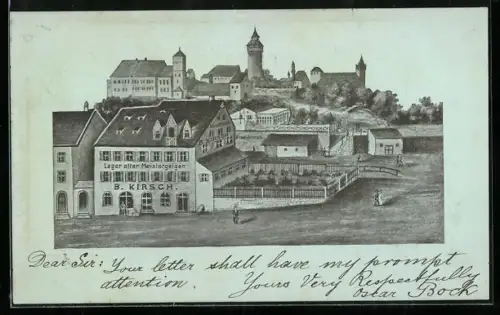 Lager alter Meistergeigen
B. KIRSCH.
Dear Sir: Your letter shall have my prompt
attention. Yours Very Respectfully
Oscar Bock